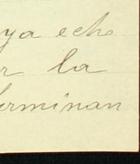 ya echo
la
terminan